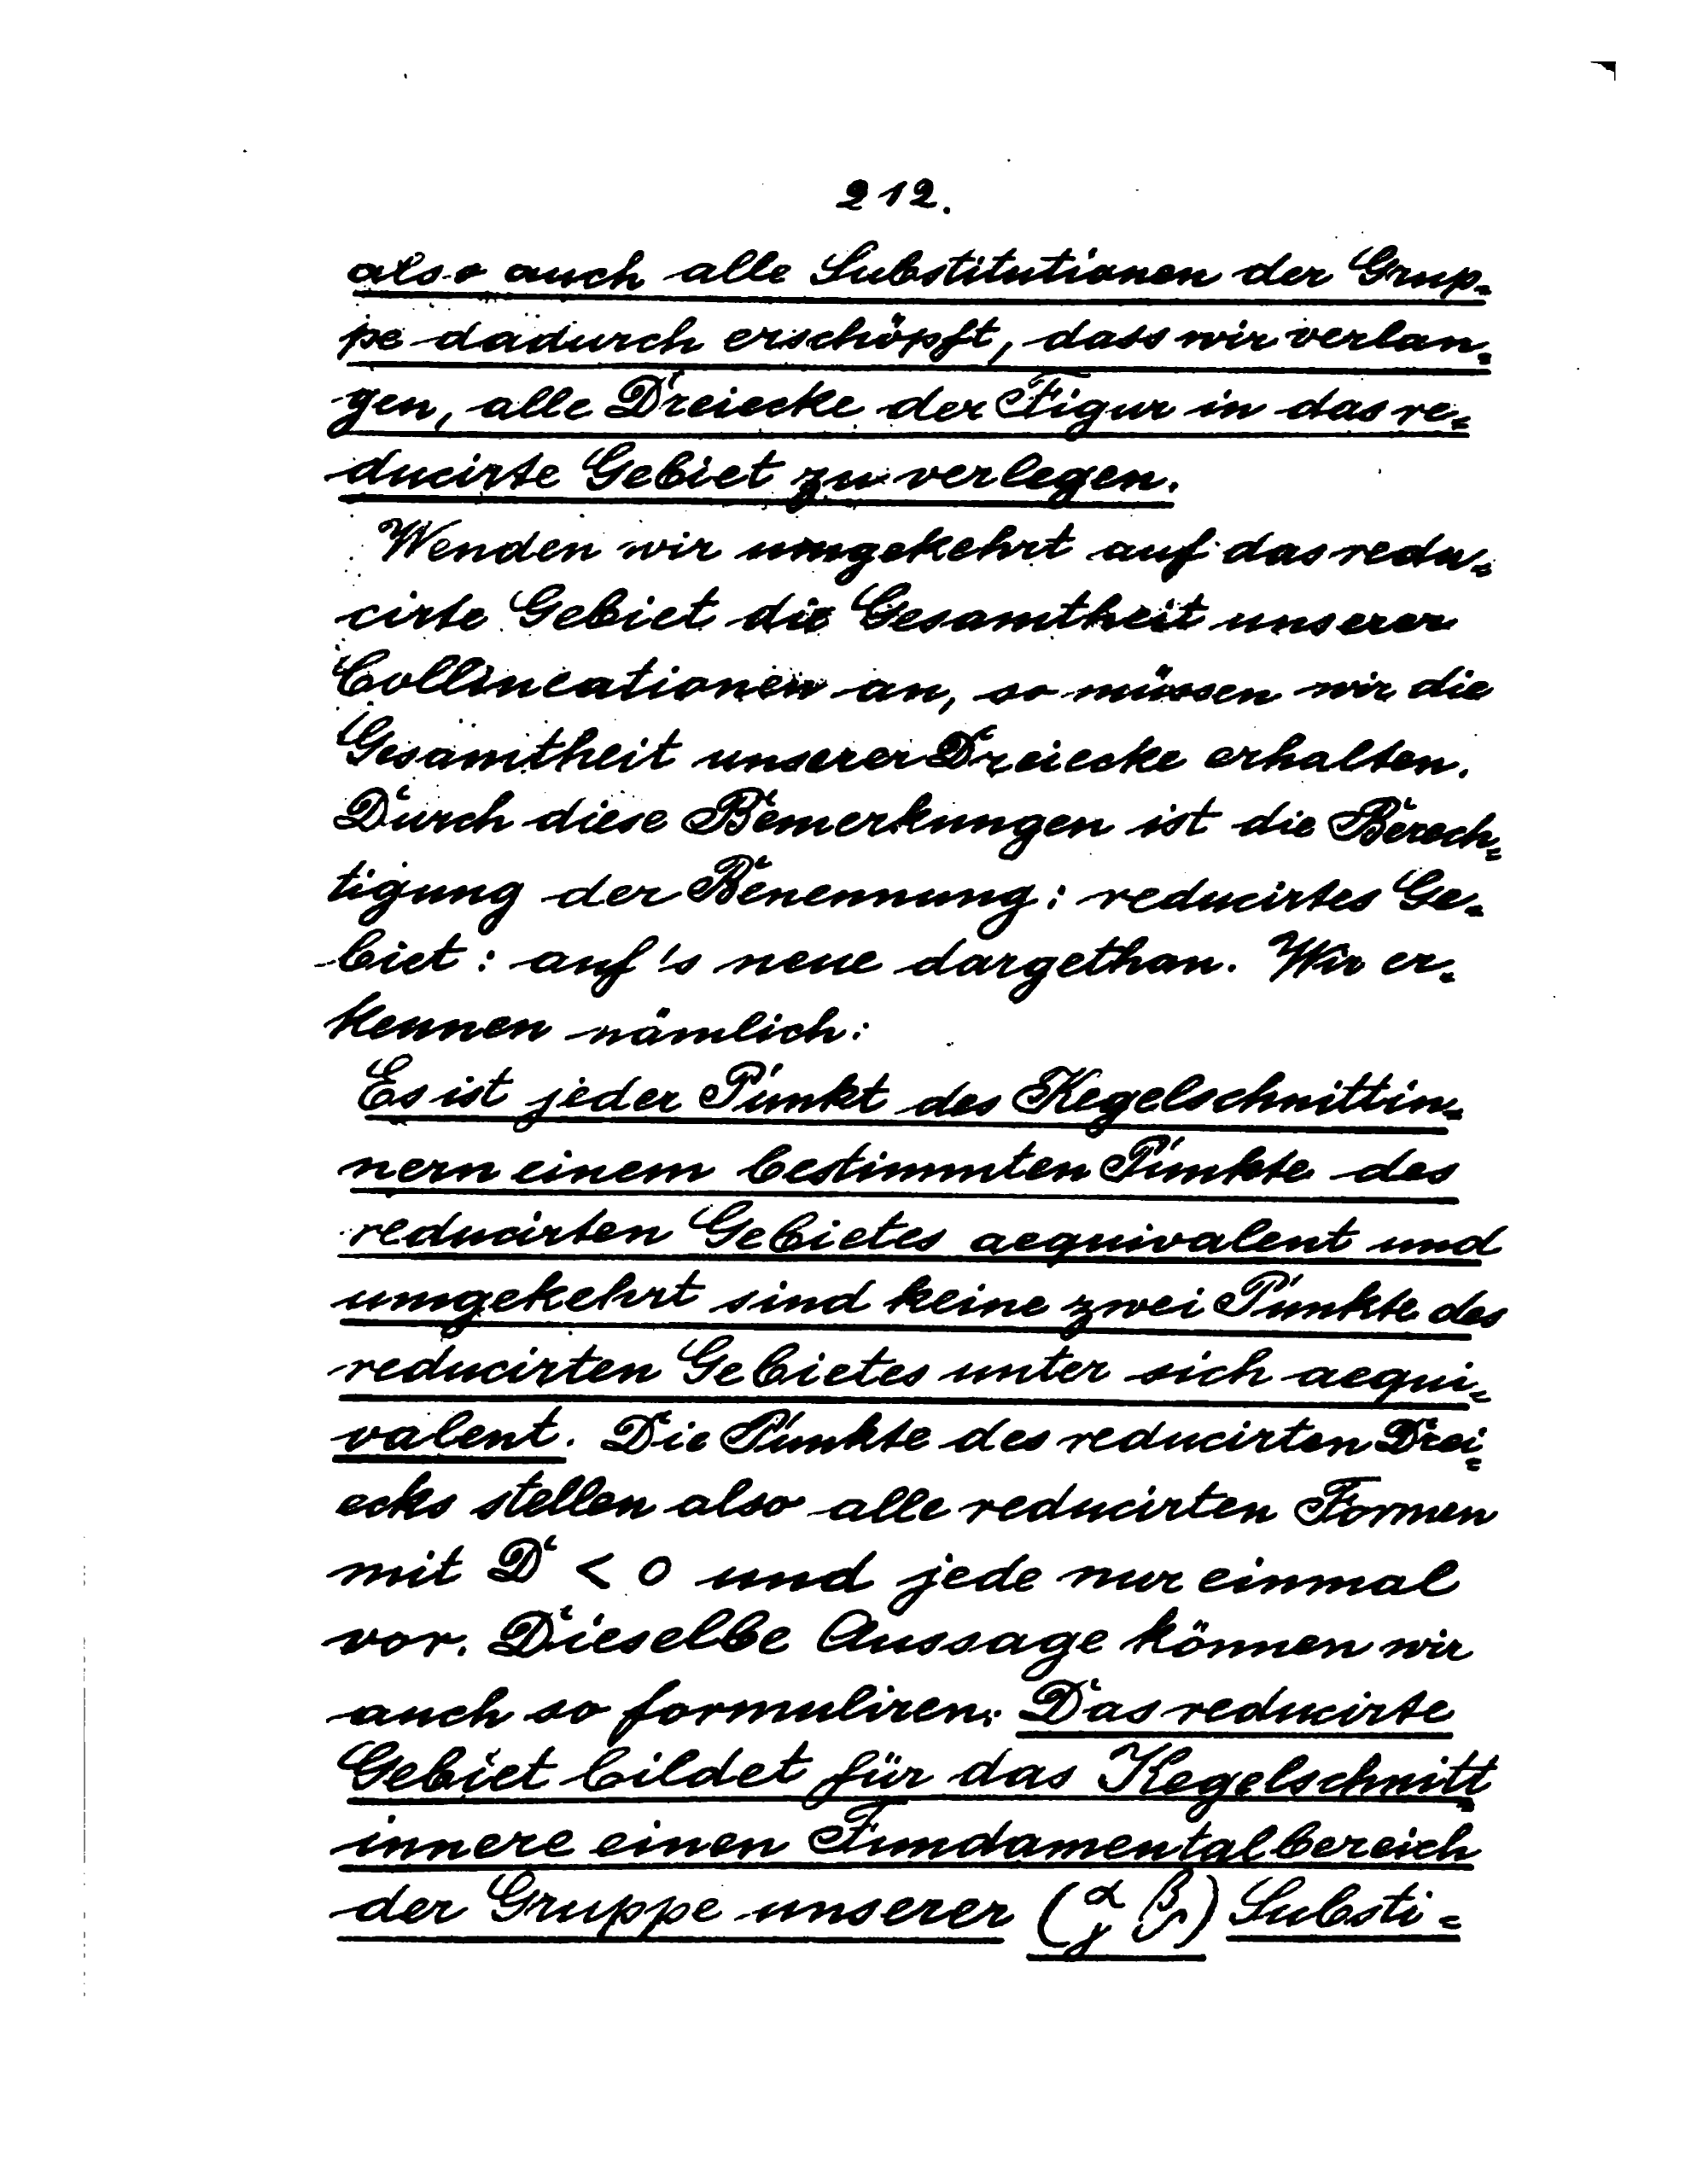 212.
also auch alle Substitutionen der Grup=
pe dadurch erschöpft, dass wir verlan=
gen, alle Dreiecke der Figur in das re=
ducirte Gebiet zu verlegen.
Wenden wir umgekehrt auf das redu=
cirte Gebiet die Gesamtheit unserer
Collineationen an, so müssen wir die
Gesamtheit unserer Dreiecke erhalten.
Durch diese Bemerkungen ist die Berech=
tigung der Benennung: reducirtes Ge=
biet: auf's neue dargethan. Wir er=
kennen nämlich:
Es ist jeder Punkt des Kegelschnittin=
nern einem bestimmten Punkte des
reducirten Gebietes aequivalent und
umgekehrt sind keine zwei Punkte des
reducirten Gebietes unter sich aequi=
valent. Die Punkte des reducirten Drei=
ecks stellen also alle reducirten Formen
mit D < 0 und jede nur einmal
vor. Dieselbe Aussage können wir
auch so formuliren: Das reducirte
Gebiet bildet für das Kegelschnitt=
innere einen Fundamentalbereich
der Gruppe unserer (α β γ δ) Substi=